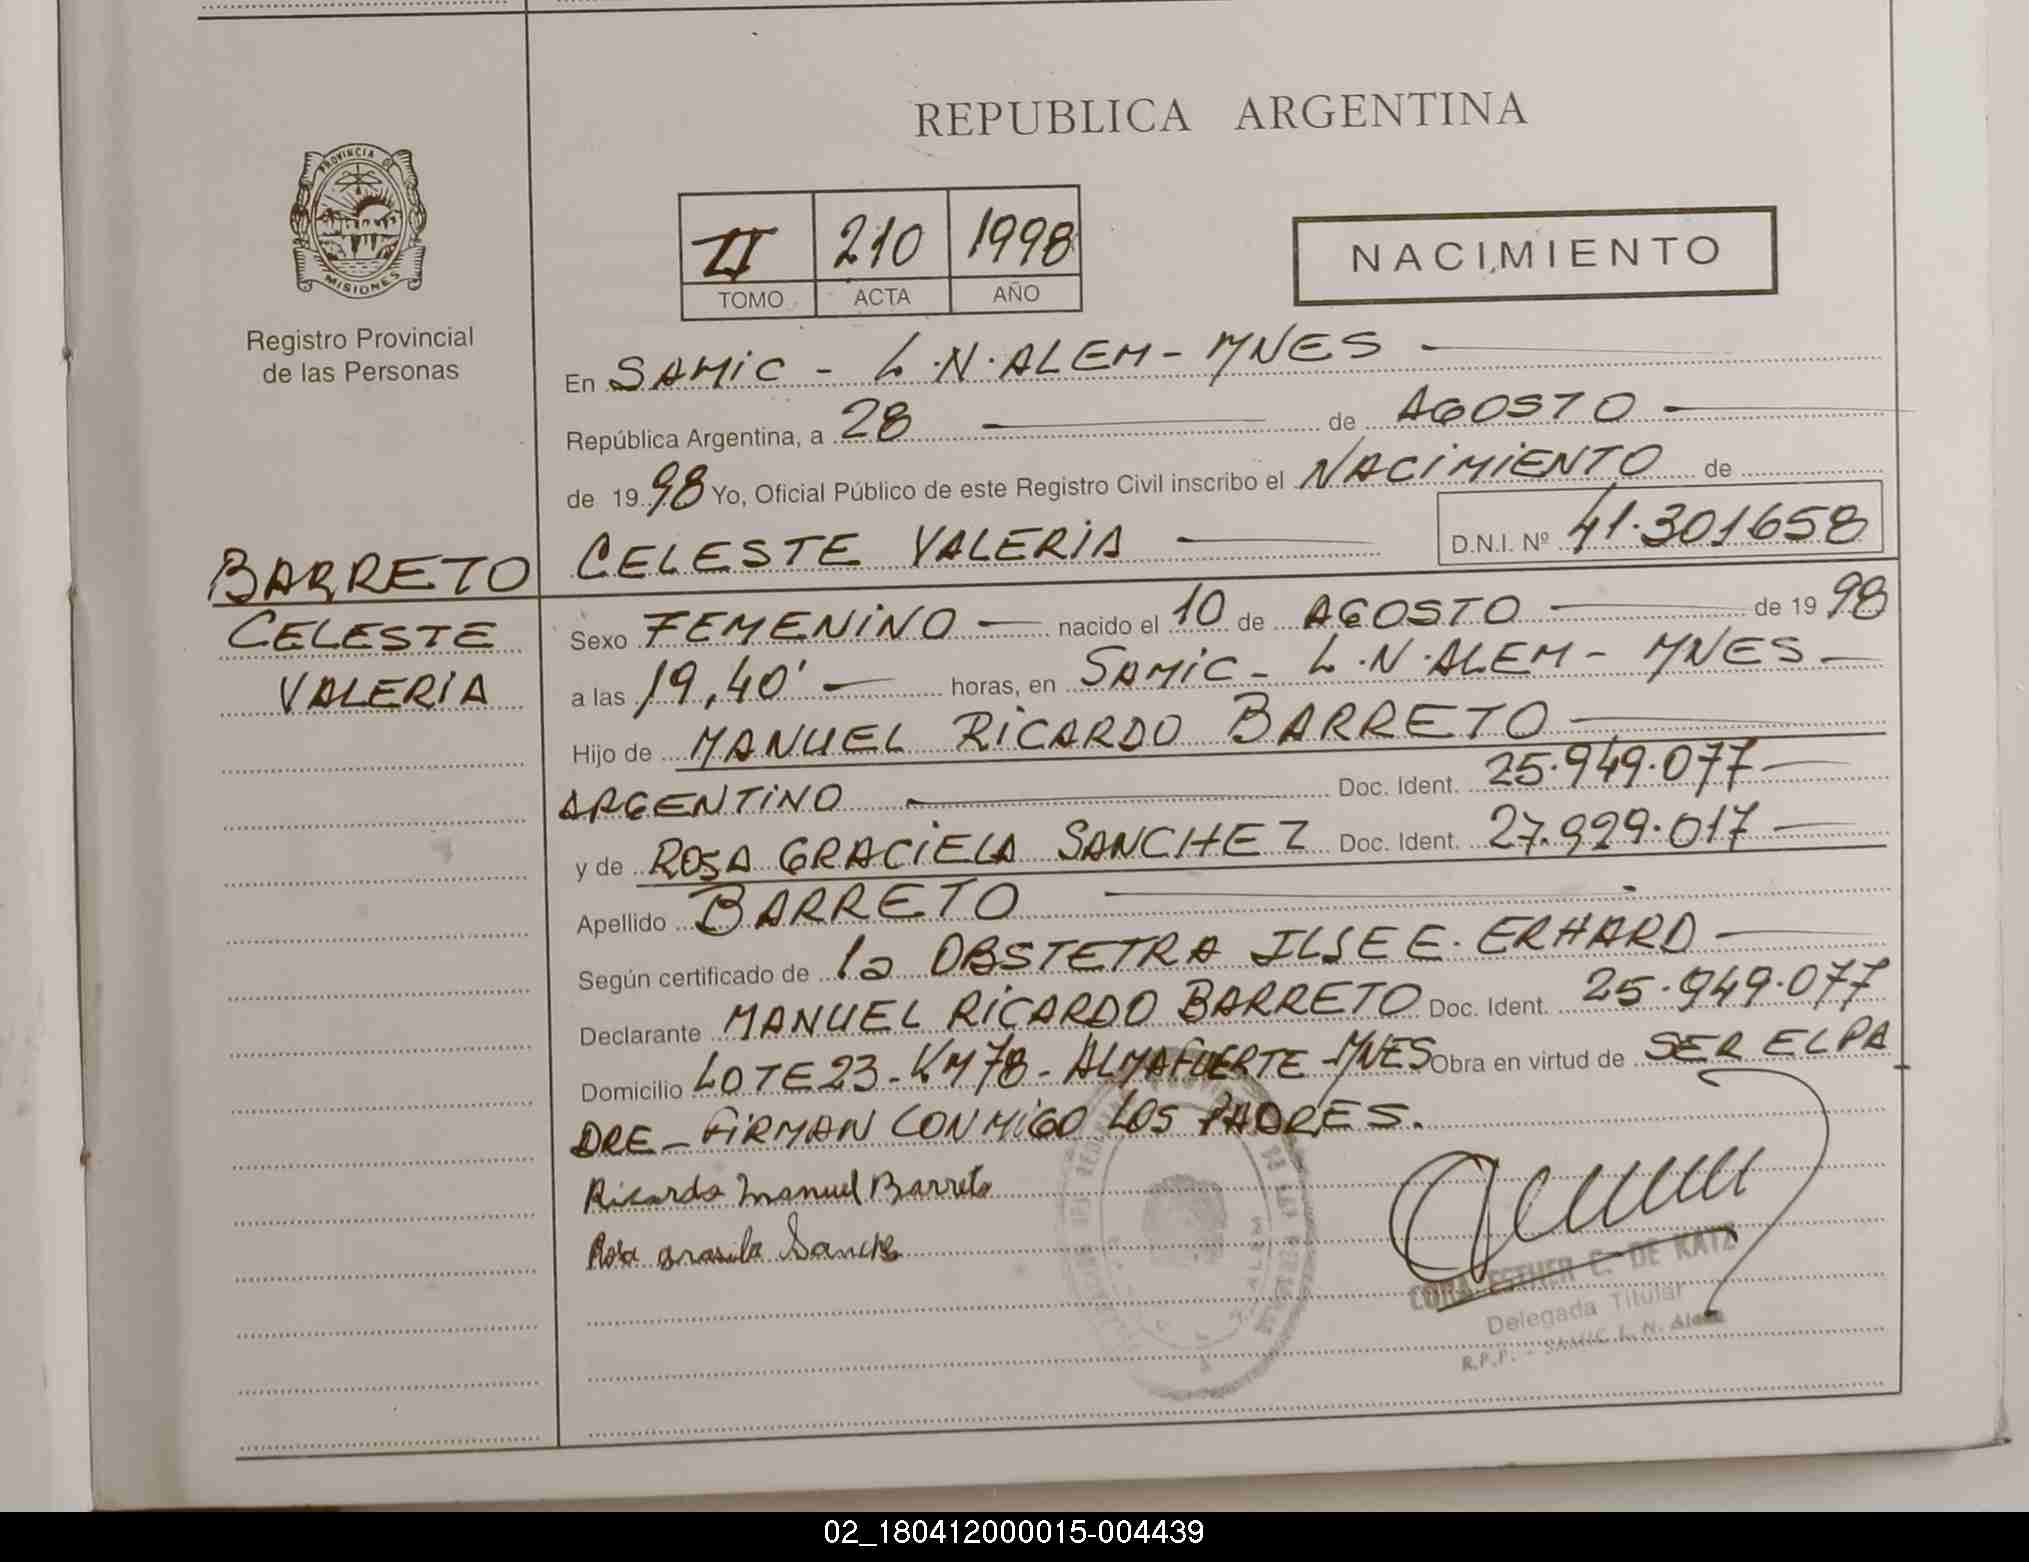 REPUBLICA ARGENTINA
PROVINCIA DE
MISIONES
Registro Provincial
de las Personas
II 210 1998
TOMO ACTA AÑO
NACIMIENTO
En SAMIC - L.N.ALEM - MNES
República Argentina, a 28 de AGOSTO
de 1998 Yo, Oficial Público de este Registro Civil inscribo el NACIMIENTO de
CELESTE VALERIA D.N.I. Nº 41.301658
BARRETO
CELESTE
VALERIA
Sexo FEMENINO nacido el 10 de AGOSTO de 1998
a las 19,40' horas, en SAMIC - L.N.ALEM - MNES
Hijo de MANUEL RICARDO BARRETO
ARGENTINO Doc. Ident. 25.949.077
y de ROSA GRACIELA SANCHEZ Doc. Ident. 27.929.017
Apellido BARRETO
Según certificado de la OBSTETRA ILSE E. ERHARD
Declarante MANUEL RICARDO BARRETO Doc. Ident. 25.949.077
Domicilio LOTE 23 - KM 78 - ALMAFUERTE - MNES Obra en virtud de SER EL PA
DRE - FIRMAN CONMIGO LOS PADRES.
Ricardo Manuel Barreto
Rosa
CORA ESTHER C. DE KATZ
Delegada Titular
R.P.P. - SAMIC L. N. Alem
02_180412000015-004439